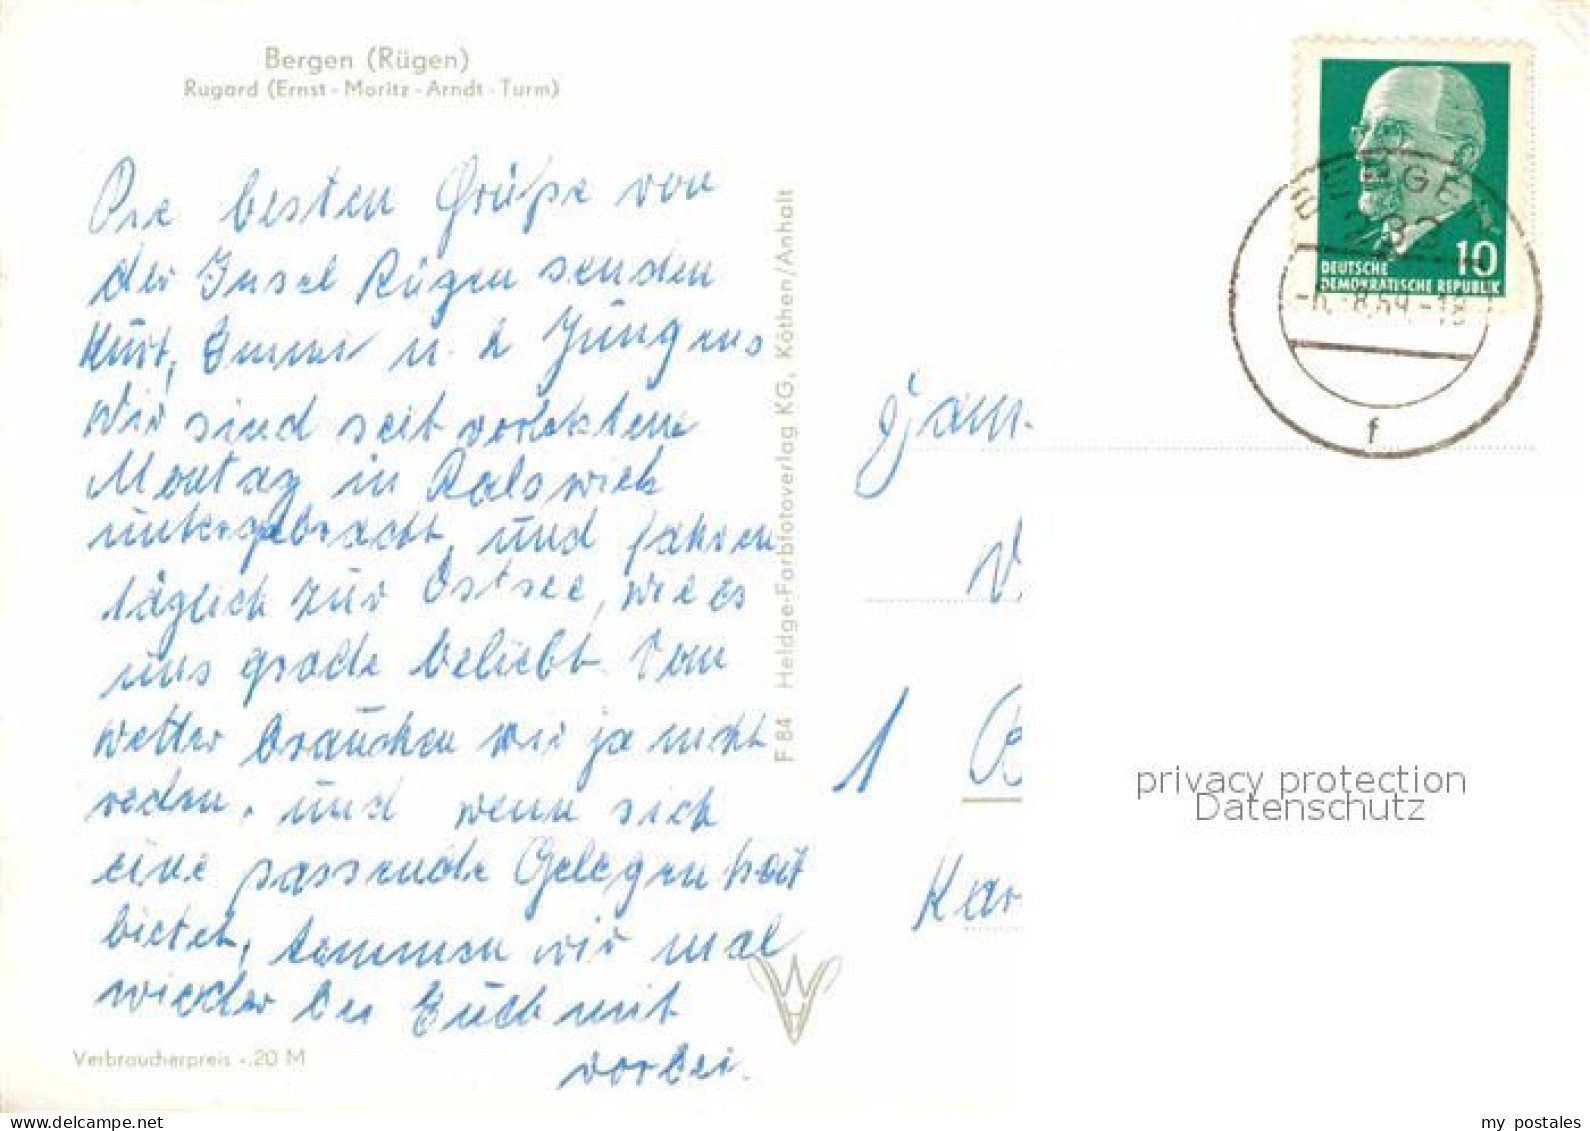 Bergen (Rügen)
Rugard (Ernst - Moritz - Arndt - Turm)
Die besten Grüße von
der Insel Rügen senden
Kurt, u. 2 Jungens
Wir sind seit vorletztene
Montag in Ralswiek
untergebracht, und fahren
täglich zur Ostsee, wie es
uns grade beliebt. Vom
Wetter brauchen wir ja nicht
reden. und wenn sich
eine passende Gelegenheit
bietet, kommen wir mal
wieder bei Euch mit
vorbei.
Verbraucherpreis -.20 M
F 84 Heldge-Farbfotoverlag KG, Köthen/Anhalt
10
DEUTSCHE
DEMOKRATISCHE REPUBLIK
BERGEN
233
-6.-8.69.-18
f
Fam.
W.
1 B
Kar
privacy protection
Datenschutz
my postales